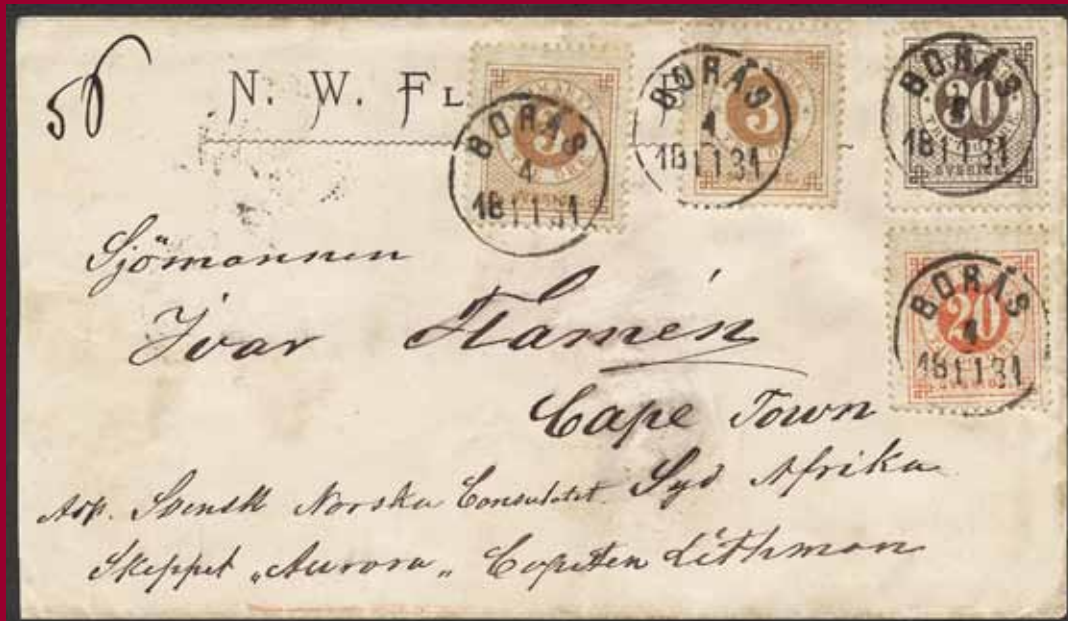 56
N. W. FL
BORÅS
4
18 11 31
BORÅS
4
18 11 31
3
BORÅS
18 11 31
30
SVERIGE
BORÅS
4
18 11 31
20
Sjömannen
Ivar Flamén
Cape Town
Syd Afrika
Svensk Norska Consulatet
Skeppet „Aurora„ Capiten Lithman